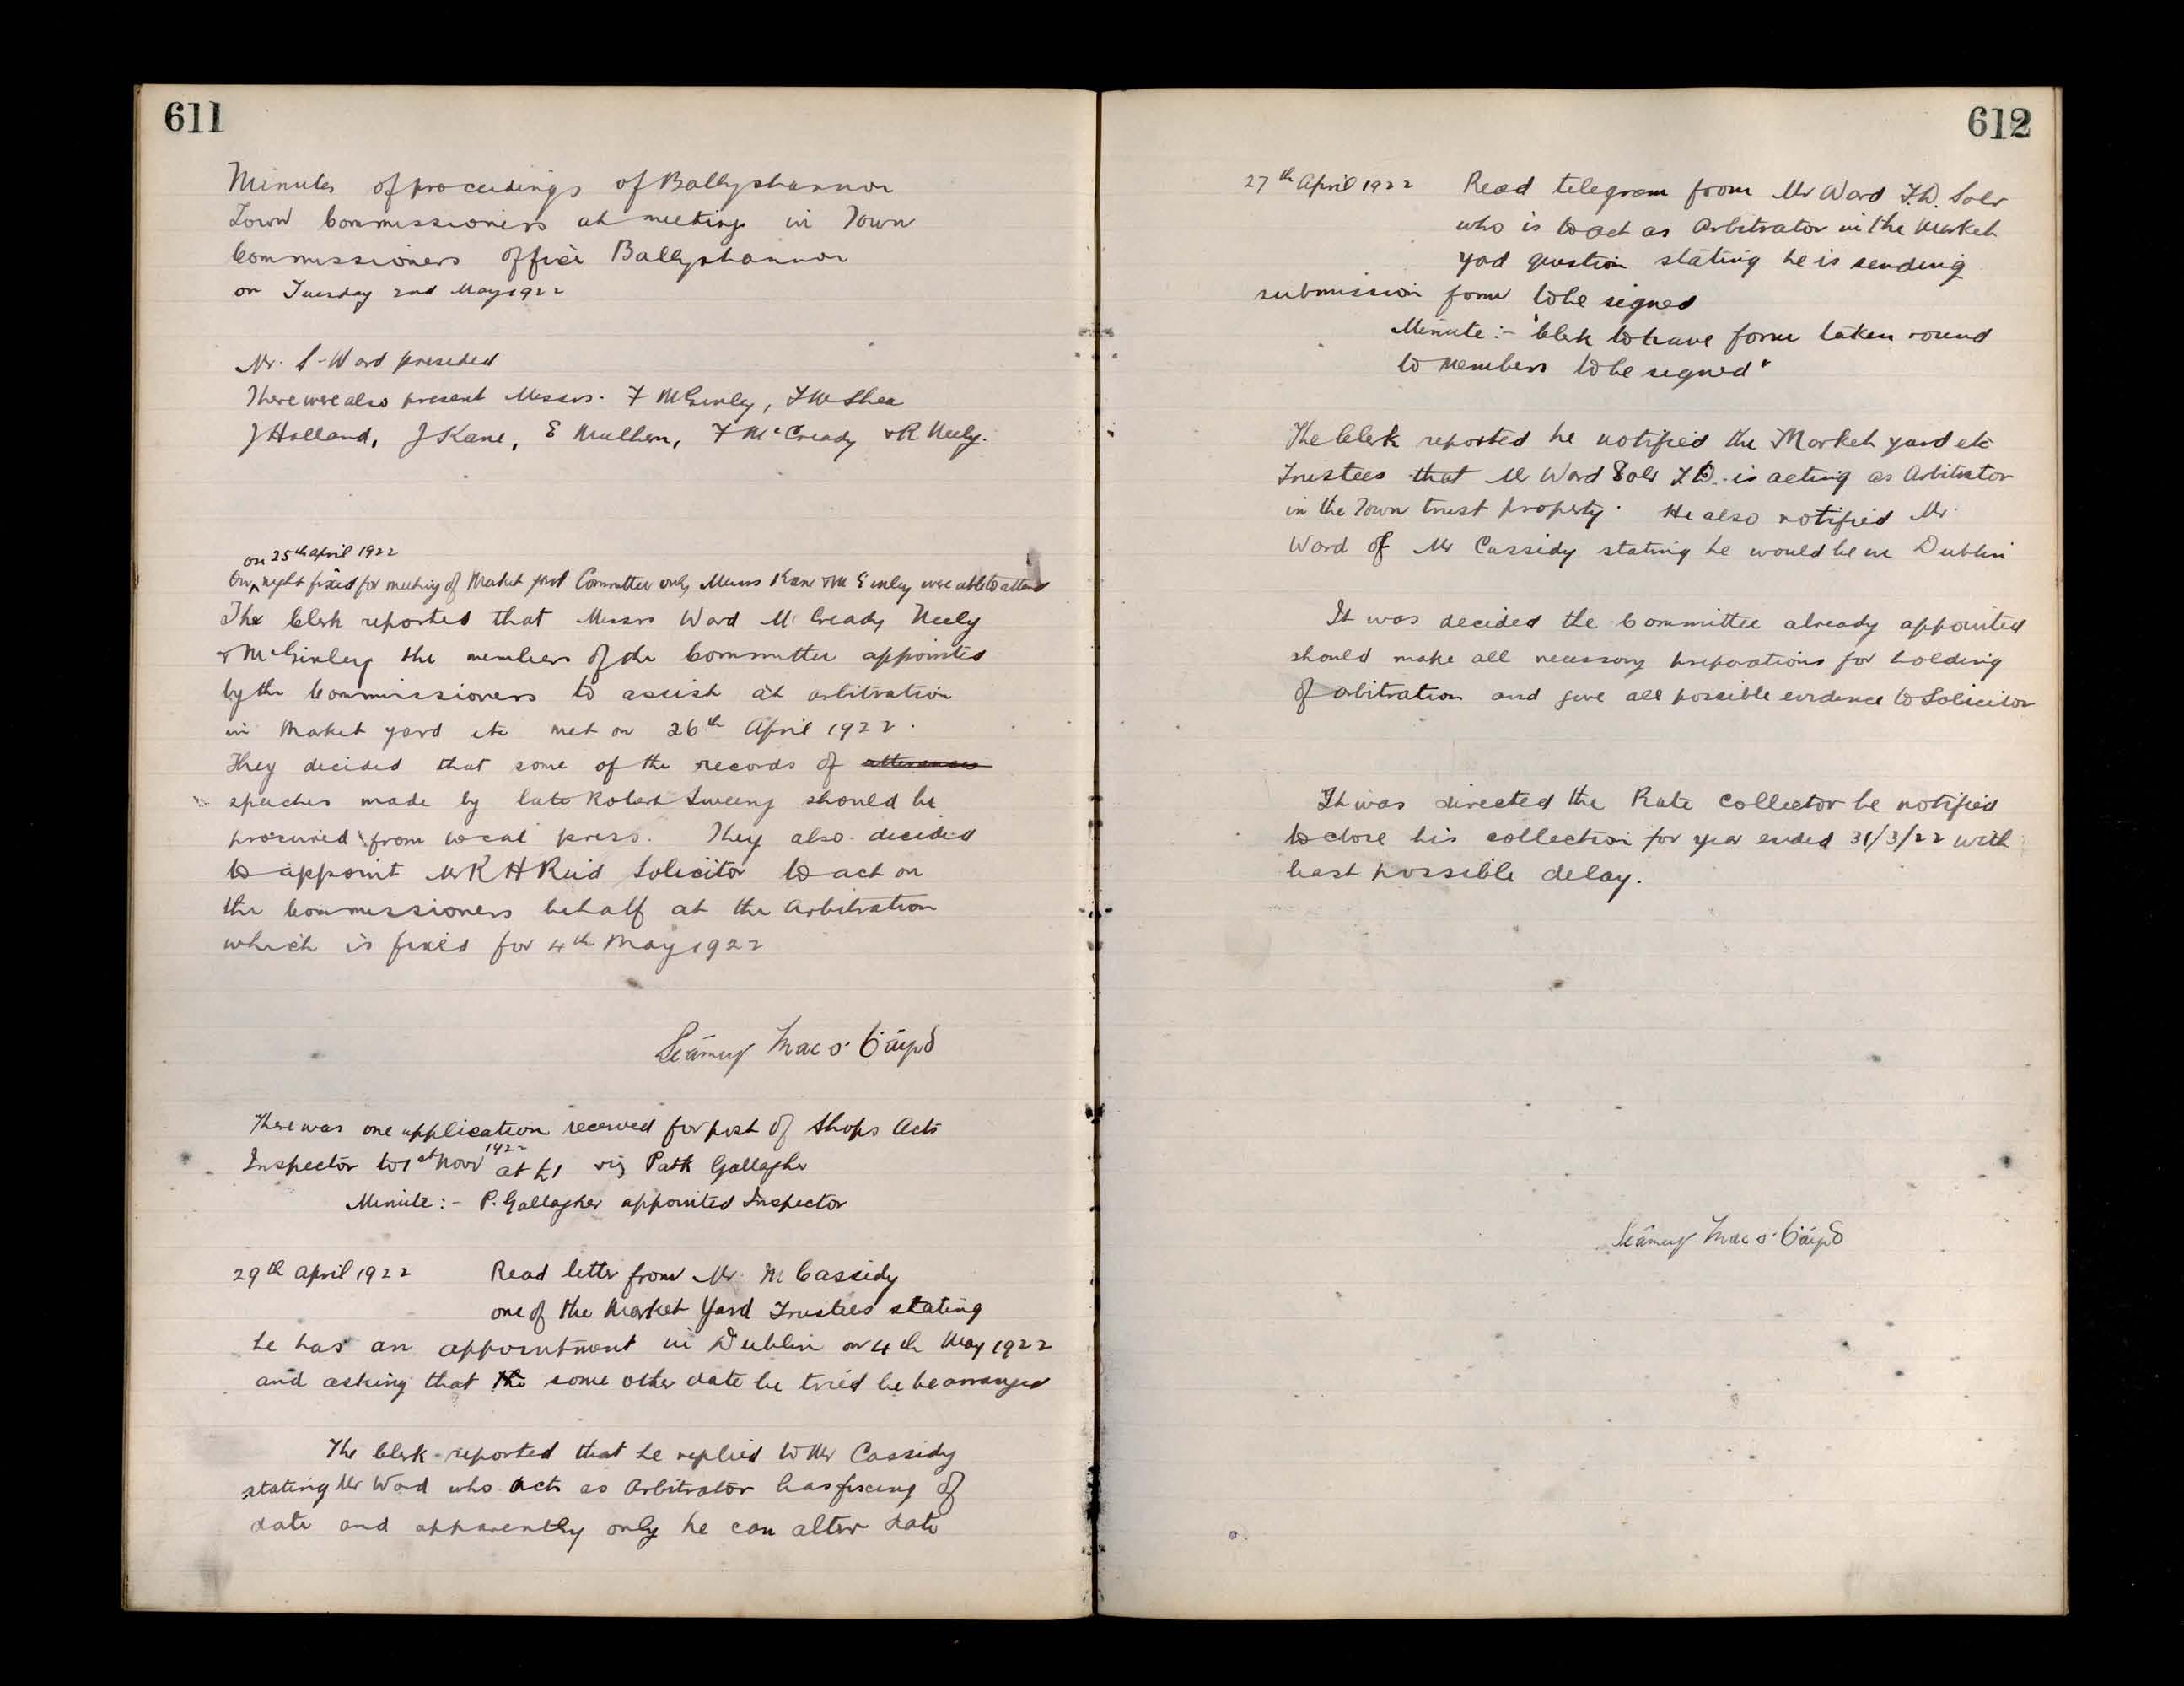 611
Minutes of proceedings of Ballyshannon
Town Commissioners at meeting in Town
Commissioners office Ballyshannon
on Tuesday 2nd May 1922
Mr. S. Ward presided
There were also present Messrs. F McGinley, J McShea
J Holland, J Kane, E Mulhern, F McCready & R Neely.
on 25th april 1922
On night fixed for meeting of Market yard Committee only Messrs Kane & McGinley were able to attend
The Clerk reported that Messrs Ward McCready Neely
& McGinley the members of the Committee appointed
by the Commissioners to assist at arbitration
in Market yard etc met on 26th April 1922.
They decided that some of the records of
speeches made by late Robert Sweeny should be
procured from local press. They also decided
to appoint Mr R H Reid Solicitor to act on
the Commissioners behalf at the Arbitration
which is fixed for 4th May 1922
Séamus Mac a' Báird
There was one application received for post of Shops Acts
Inspector to 1st Novr 1922 at £1 viz Patk Gallagher
Minute:- P. Gallagher appointed Inspector
29th April 1922 Read letter from Mr M Cassidy
one of the Market Yard Trustees stating
he has an appointment in Dublin on 4th May 1922
and asking that the some other date be tried be be arranged
The Clerk reported that he replied to Mr Cassidy
stating Mr Ward who acts as Arbitrator has fixing of
date and apparently only he can alter date
612
27th April 1922 Read telegram from Mr Ward T.D. Solr
who is to act as Arbitrator in the Market
yad question stating he is sending
submission form to be signed
Minute:- "Clerk to have form taken round
to members to be signed"
The Clerk reported he notified the Market yard etc
Trustees that Mr Ward Solr T.D. is acting as Arbitrator
in the Town trust property. He also notified Mr.
Ward of Mr Cassidy stating he would be in Dublin
It was decided the Committee already appointed
should make all necessary preparations for holding
of abitration and give all possible evidence to Solicitor
It was directed the Rate Collector be notified
to close his collection for year ended 31/3/22 with
least possible delay.
Séamus Mac a' Báird